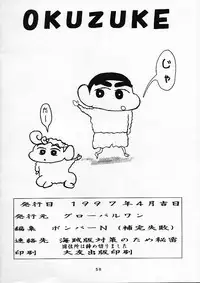 OKUZUKE
じゃ
だー
発行日 1997年4月吉日
発行元 グローバルワン
編集 ボンバーN(補定失敗)
連絡先 海賊版対策のため秘密
印刷 大友出版印刷
56